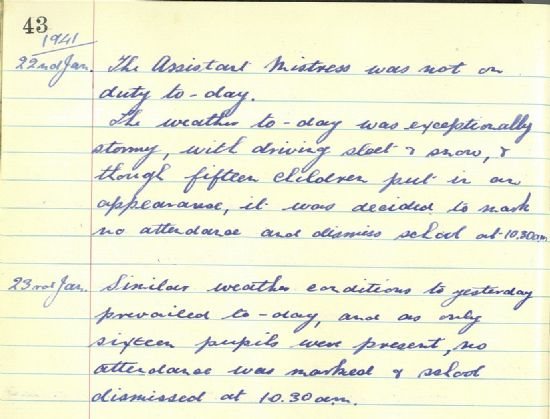 43
1941
22nd Jan. The Assistant Mistress was not on
duty to-day.
The weather to-day was exceptionally
stormy, with driving sleet & snow, &
though fifteen children put in an
appearance, it was decided to mark
no attendance and dismiss school at 10.30am
23rd Jan. Similar weather conditions to yesterday
prevailed to-day, and as only
sixteen pupils were present, no
attendance was marked & school
dismissed at 10.30am.